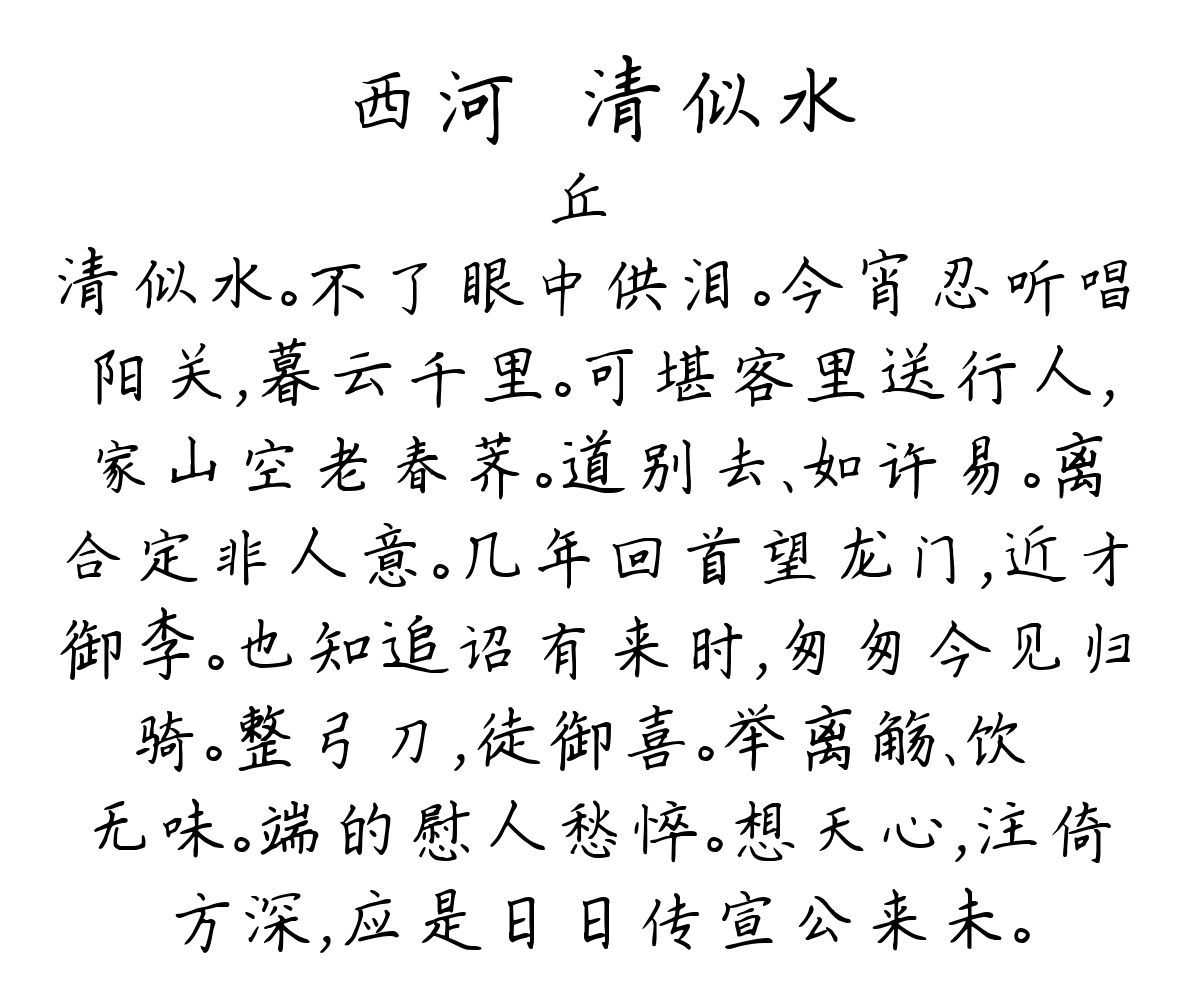 西河 清似水
丘
清似水。不了眼中供泪。今宵忍听唱
阳关,暮云千里。可堪客里送行人,
家山空老春荠。道别去、如许易。离
合定非人意。几年回首望龙门,近才
御李。也知追诏有来时,匆匆今见归
骑。整弓刀,徒御喜。举离觞、饮
无味。端的慰人愁悴。想天心,注倚
方深,应是日日传宣公来未。